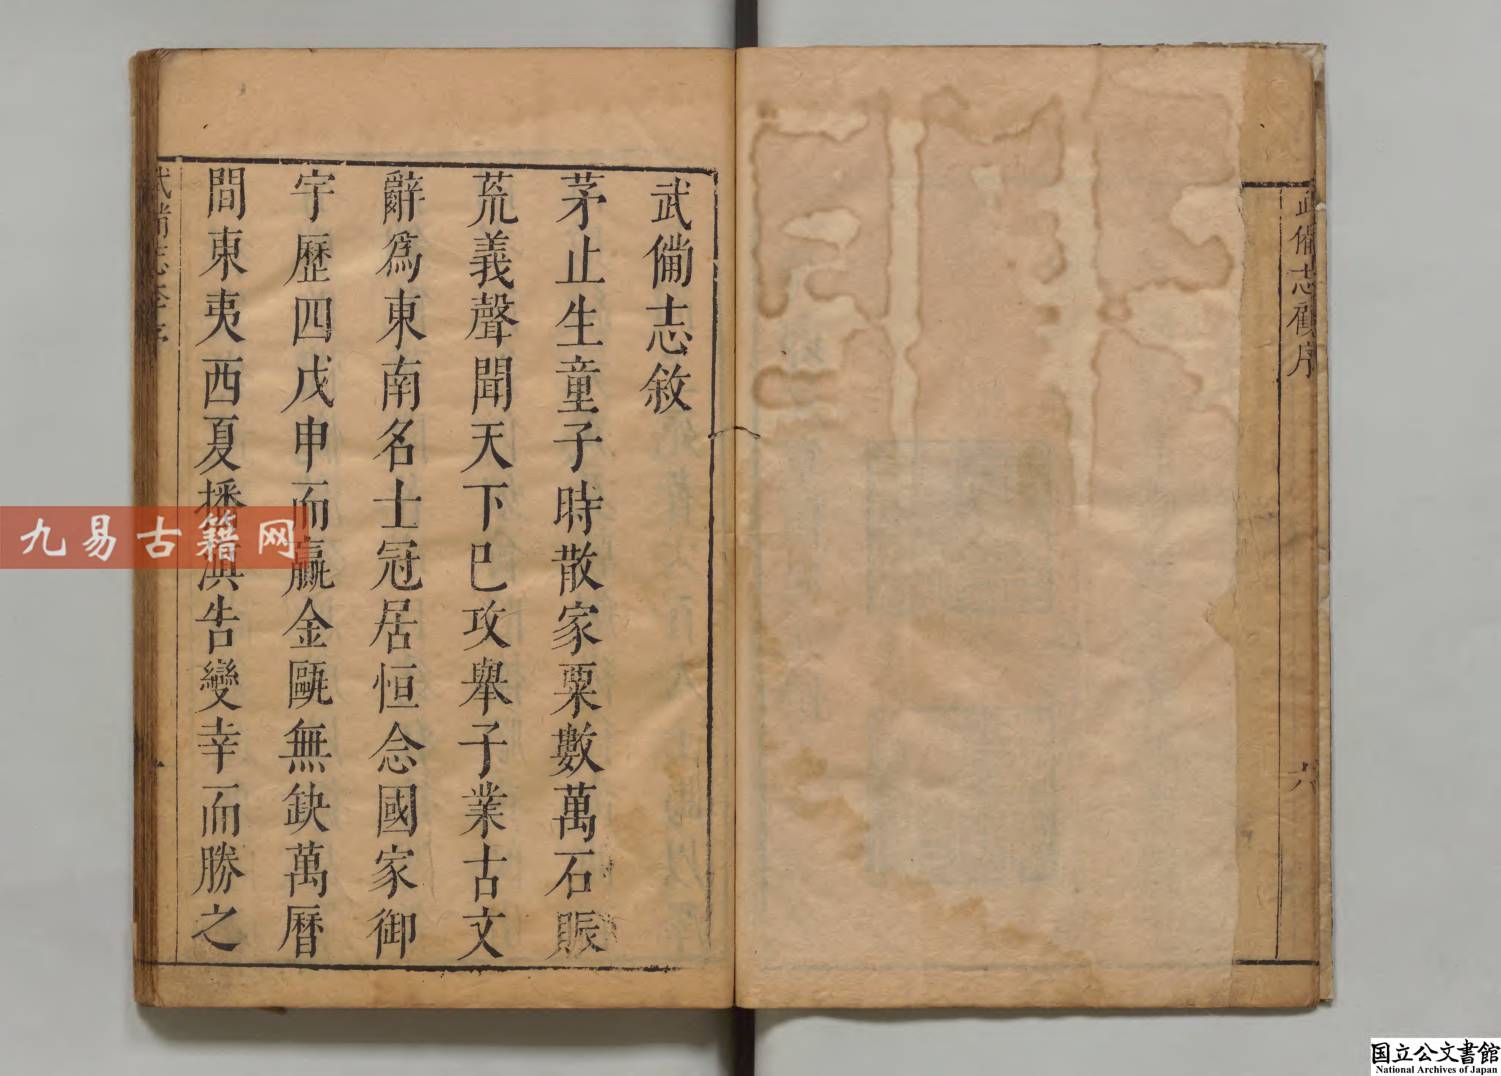 武備志顧序
六
武備志敘
茅止生童子時散家粟數萬石賑
荒義聲聞天下巳攻舉子業古文
辭爲東南名士冠居恒念國家御
宇歷四戊申而贏金甌無缺萬曆
間東夷西夏播滇告變幸而勝之
武備志李序
一
九易古籍网
国立公文書館
National Archives of Japan